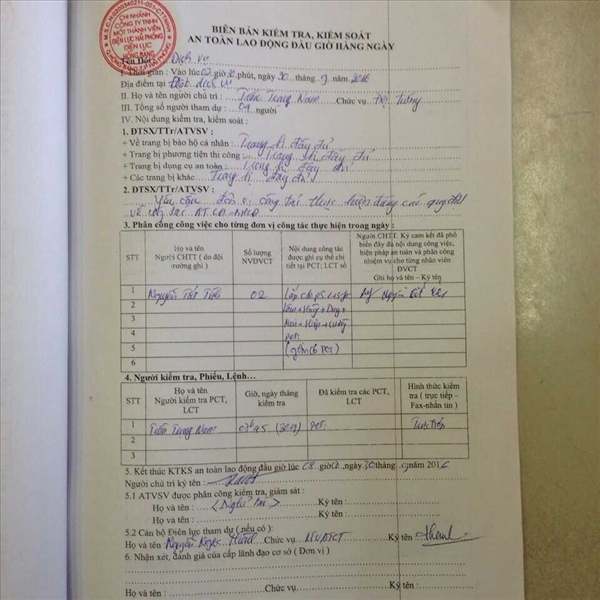 CHI NHÁNH
CÔNG TY TNHH
MỘT THÀNH VIÊN
ĐIỆN LỰC HẢI PHÒNG
ĐIỆN LỰC
HỒNG BÀNG
BIÊN BẢN KIỂM TRA, KIỂM SOÁT
AN TOÀN LAO ĐỘNG ĐẦU GIỜ HÀNG NGÀY
Tên Đội: Dịch vụ
I. Thời gian : Vào lúc giờ phút, ngày 30 tháng 9 năm 2016
Địa điểm tại: Đội dịch vụ
II. Họ và tên người chủ trì : Trần Trung Nam Chức vụ Đội trưởng
III. Tổng số người tham dự : 09 người
IV. Nội dung kiểm tra, kiểm soát :
1. ĐTSX/TTr/ATVSV :
+ Về trang bị bảo hộ cá nhân : Trang bị đầy đủ
+ Trang bị phương tiện thi công : Trang bị đầy đủ
+ Trang bị dụng cụ an toàn : Trang bị đầy đủ
+ Các trang bị khác Trang bị đầy đủ
2. ĐTSX/TTr/ATVSV :
Yêu cầu đơn vị công tác thực hiện đúng các quy định
về công tác AT
3. Phân công công việc cho từng đơn vị công tác thực hiện trong ngày :
STT
Họ và tên
Người CHTT ( do đội
trưởng ghi )
Số lượng
NVĐVCT
Nội dung công tác
được ghi cụ thể chi
tiết tại PCT; LCT số
Người CHTT. Ký cam kết đã phổ
biến đầy đủ nội dung công việc,
biện pháp an toàn và phân công
nhiệm vụ cho từng nhân viên
ĐVCT
Ghi họ và tên – Ký tên
1 Nguyễn 02
2
3
4
PCT:
5 (gồm 6 PCT)
6
4. Người kiểm tra, Phiếu, Lệnh…
STT
Họ và tên
Người kiểm tra PCT,
LCT
Giờ, ngày tháng
kiểm tra
Đã kiểm tra các PCT,
LCT
Hình thức kiểm
tra ( trực tiếp –
Fax-nhắn tin )
1 Trần Trung Nam (30/9) PCT: Trực tiếp
2
3
5. Kết thúc KTKS an toàn lao động đầu giờ lúc 08 giờ ,ngày 30 tháng 9 năm 2016
Người chủ trì ký tên :
5.1 ATVSV được phân công kiểm tra, giám sát :
Họ và tên : Ký tên :
Họ và tên : Ký tên :
5.2 Cán bộ Điện lực tham dự ( nếu có ):
Họ và tên Nguyễn Ngọc Chức vụ Ký tên
6. Nhận xét, đánh giá của cấp lãnh đạo cơ sở ( Đơn vị )
Họ và tên : Chức vụ : Ký tên :